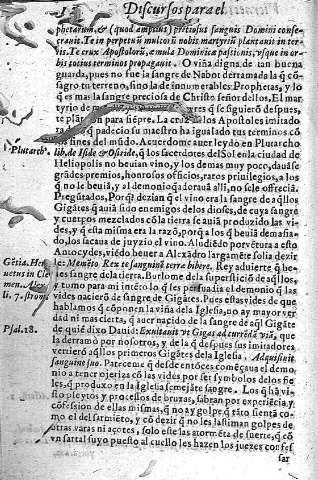 Discursos para el
phetarum, & (quod amplius) pretiosus sanguis Domini conse-
crauit. Te in perpetuũ multorũ nobis martyriũ plantauit in ter-
ris. Te crux Apostolorũ, æmula Dominicæ passionis, vsque in or-
bis totius terminos propagauit. O viña digna de tan buena
guarda, pues no fue la sangre de Nabot derramada la q̃ cõ-
sagro tu terreno, sino la de innumerables Prophetas, y lo
q̃ es mas la sangre preciosa de Christo señor dellos. El mar-
tyrio de se siguierõ despues,
te plãtaron para siẽpre. La cruz los Apostoles imitado
q̃ padecio su maestro ha igualado tus terminos cõ
los fines del mũdo. Acuerdome auer leydo en Plutarcho
Plutarch.
lib. de Iside & Oside, q̃ los sacerdotes del Sol en la ciudad de
Heliopolis no beuian vino, y los demas muy poco, dauãse
grãdes premios, honrosos officios, raros priuilegios, a los
q̃ no le beuiã, y al demonio q̃ dorauã alli, no se le offreciã.
Pregũtados, Porq̃? dezian q̃ el vino era la sangre de aq̃llos
Gigãtes q̃ auiã sido enemigos de los dioses, de cuya sangre
y cuerpos mezclados cõ la tierra se auiã produzido las vi-
des, y q̃ esta misma era la razõ, porq̃ a los q̃ beuiã demasia-
do, los sacaua de juyzio el vino. Aludiẽdo por vẽtura a esto
Antocyde, viẽdo beuer a Alexãdro largamẽte solia dezir
le: Memẽto Rex te sanguinẽ terræ bibere. Rey aduierte q̃ be-
ues sangre de la tierra. Burlome de la superstició de aq̃llos,
Men. Alex.
y tomo para mi intẽto lo q̃ les persuadia el demonio q̃ las
li. 7. strom.
vides nacierõ de sangre de Gigãtes. Pues estas vides de que
hablamos q̃ cõponen la viña de la Iglesia, no ay mayor ver
dad ni mas cierta, q̃ auer nacido de la sangre de aq̃l Gigãte
Psal. 18.
de quiẽ dixo Dauid: Exultauit vt Gigas ad currendã viã, que
la derramò por nosotros, y de la q̃ despues sus imitadores
vertierõ aq̃llos primeros Gigãtes de la Iglesia. Adquisiuit
sanguine suo. Pareceme q̃ desde entõces començaua el demo
nio a tener ojerias cõ las vides por ser symbolos de los fie-
les, q̃ produxo en la Iglesia semejãte sangre. Los q̃ hã vi-
sto pleytos y processos de bruxas, sabran por experiẽcia, y
cõfession de ellas mismas, q̃ no ay golpe q̃ tãto sientã co-
mo el del sarmiẽto, y cõ dezir q̃ no les lastiman golpes de
otras varas ni açotes, solo este las atormẽta de suerte, q̃ cõ
vn sartal suyo puesto al cuello les hazen los juezes confes
sar